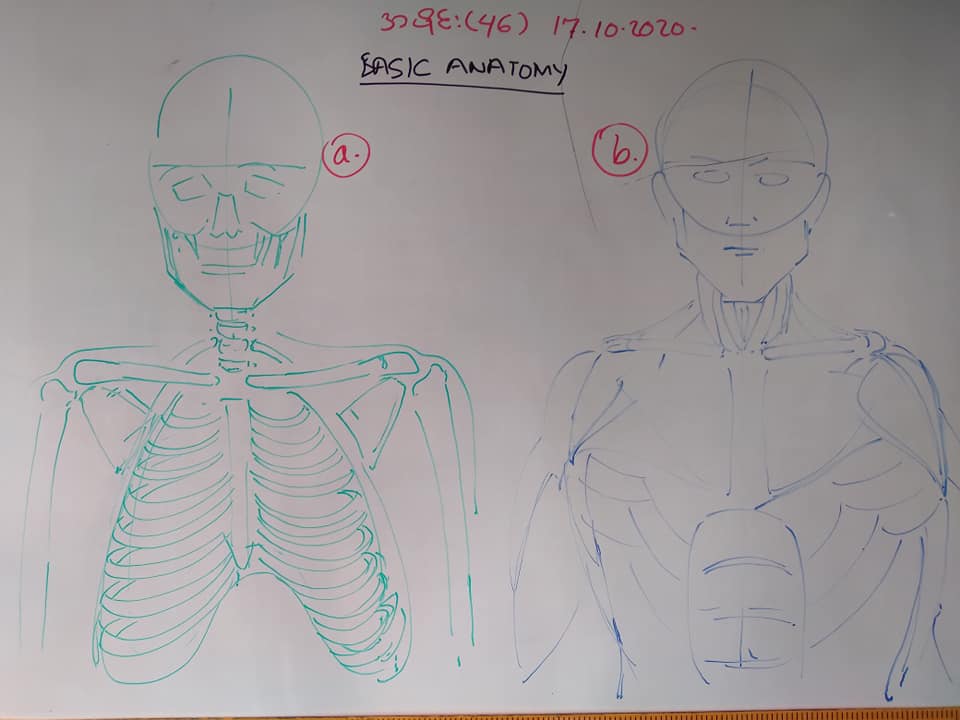 အချိုး(46) 17.10.2020.
BASIC ANATOMY
a.
b.